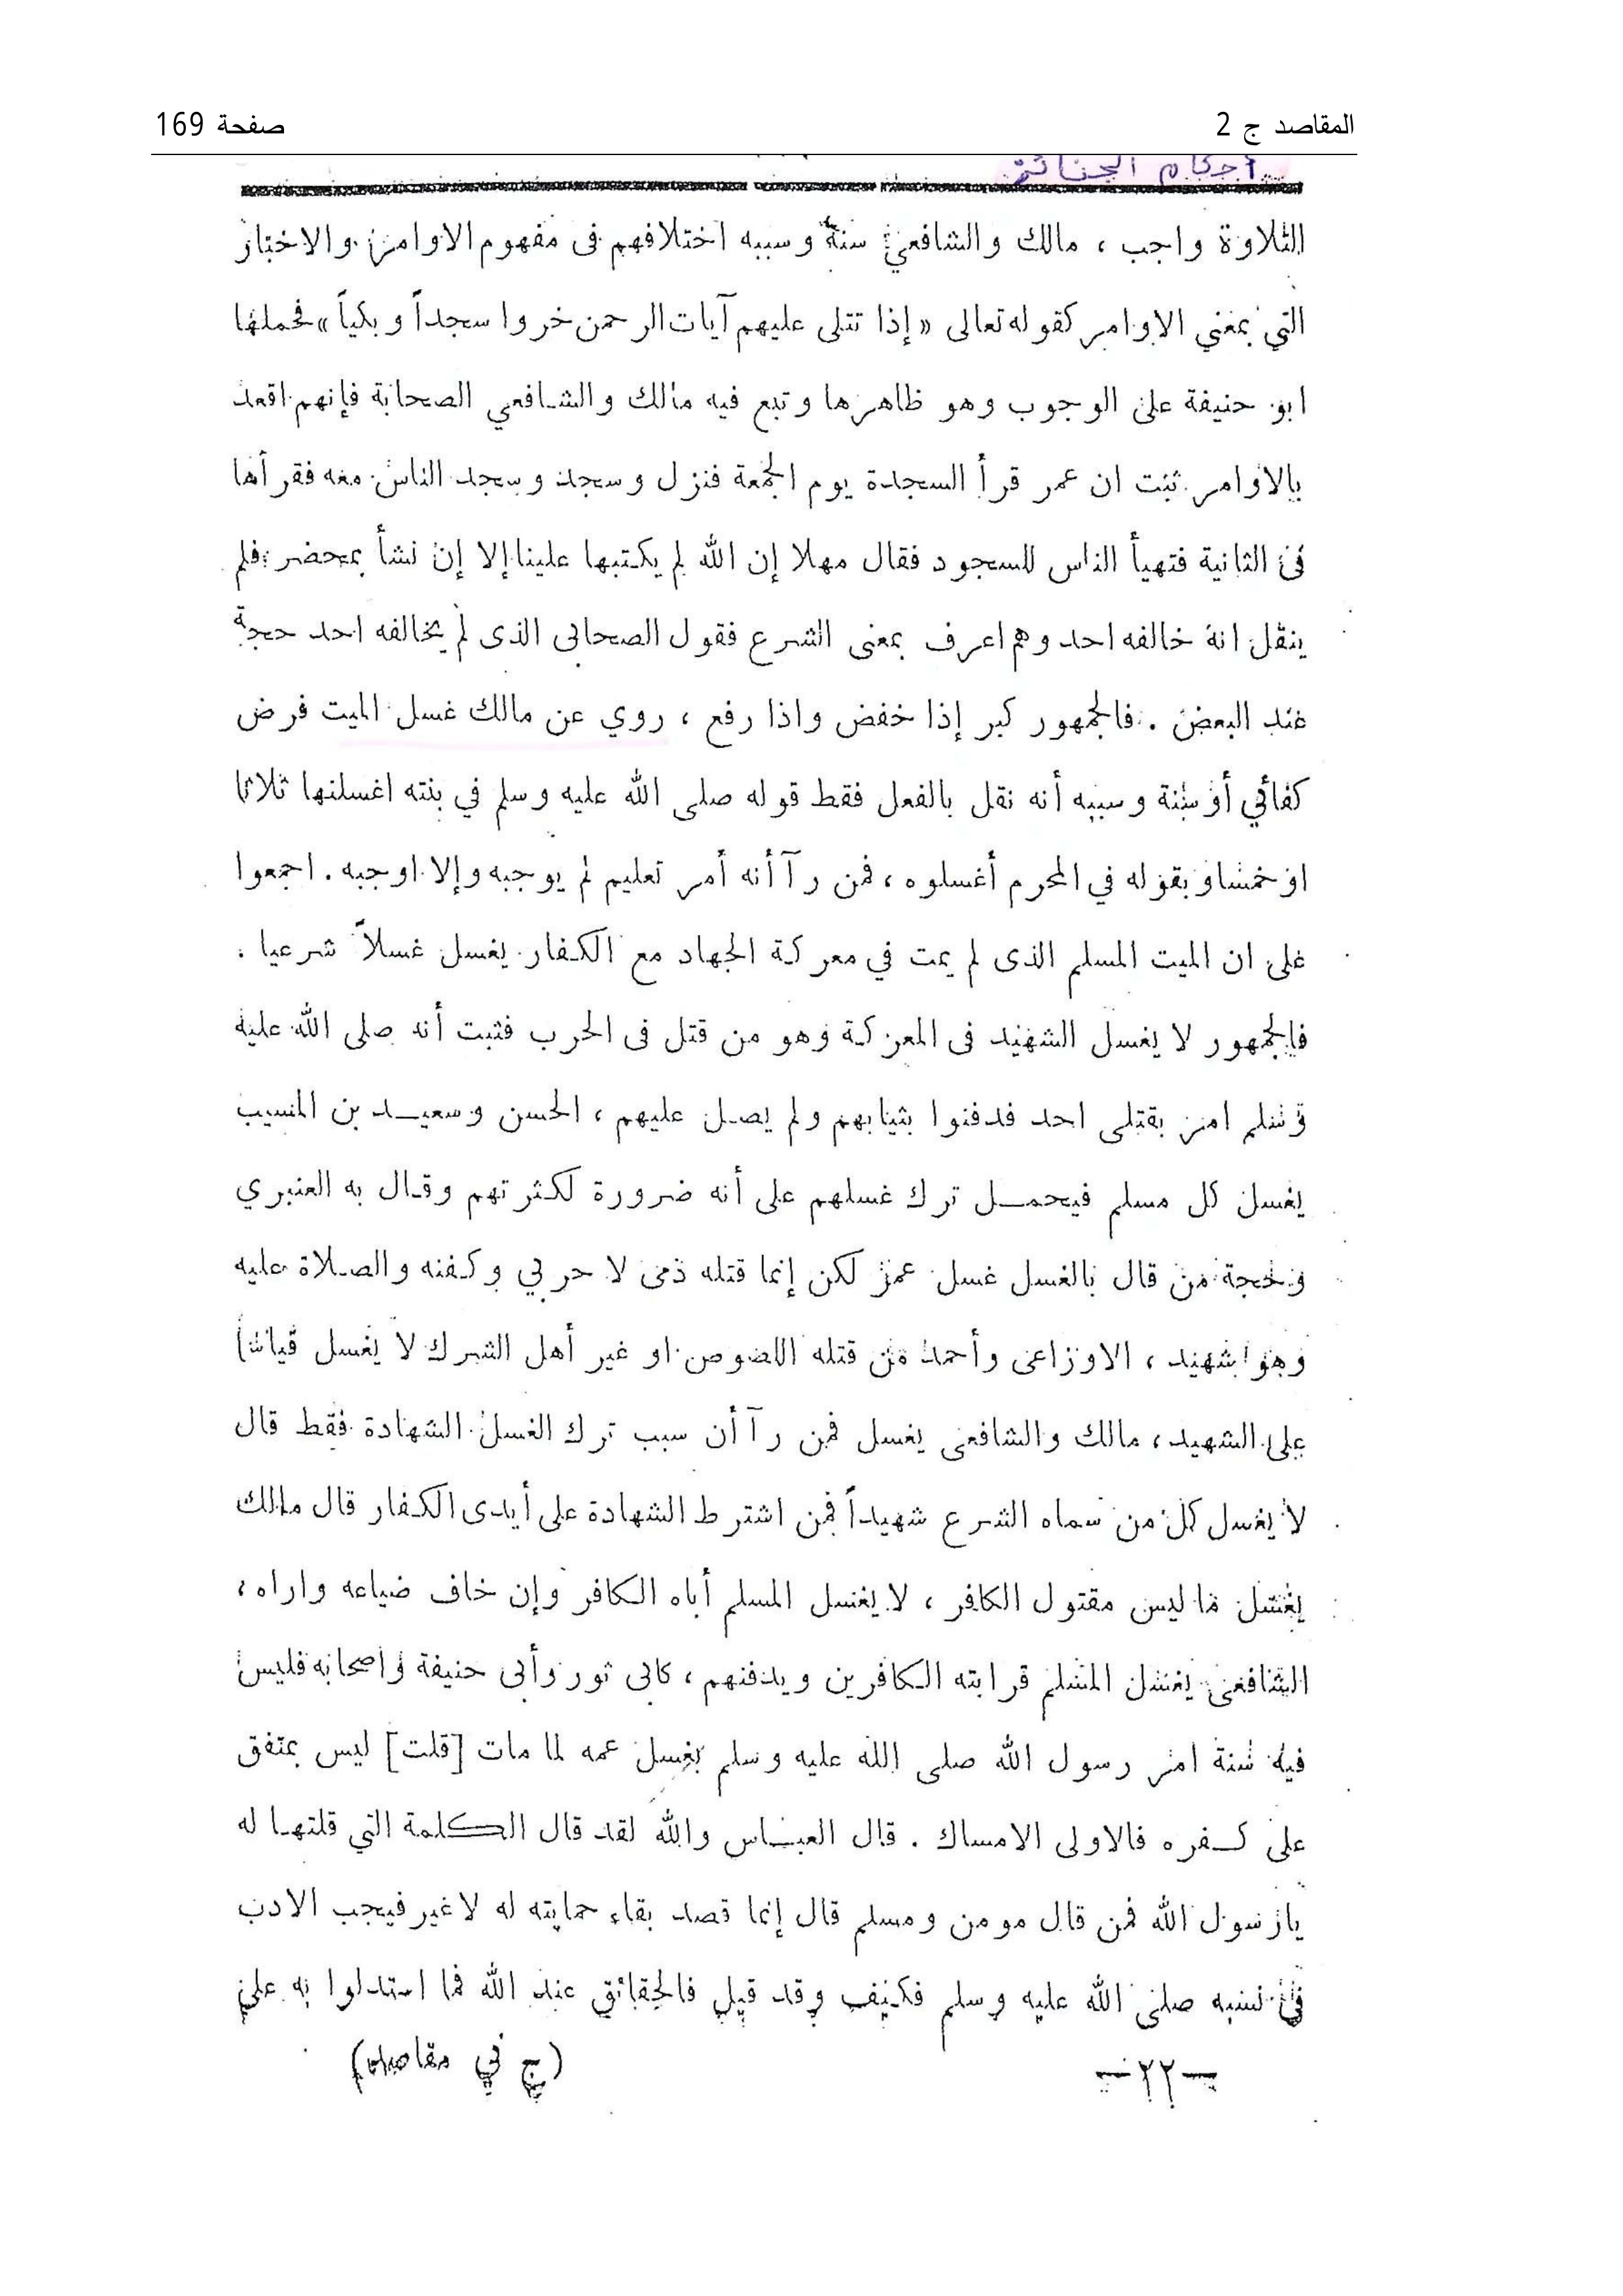 المقاصد ج 2
صفحة 169
أحكام الجنائز
التلاوة واجب ، مالك والشافعي سنة وسببه اختلافهم فى مفهوم الاوامر والاخبار
التي بمعني الاوامر كقوله تعالى «إذا تتلى عليهم آيات الرحمن خروا سجداً وبكياً» فحملها
ابو حنيفة على الوجوب وهو ظاهرها وتبع فيه مالك والشافعي الصحابة فإنهم اقعد
بالاوامر ثبت ان عمر قرأ السجدة يوم الجمعة فنزل وسجد وسجد الناس معه فقرأها
فى الثانية فتهيأ الناس للسجود فقال مهلا إن الله لم يكتبها علينا إلا إن نشأ بمحضر فلم
ينقل انه خالفه احد وهم اعرف بمعنى الشرع فقول الصحابى الذى لم يخالفه احد حجة
عند البعض . فالجمهور كبر إذا خفض واذا رفع ، روي عن مالك غسل الميت فرض
كفائي أو سنة وسببه أنه نقل بالفعل فقط قوله صلى الله عليه وسلم في بنته اغسلنها ثلاثا
او خمسا وبقوله في المحرم أغسلوه ، فمن رآ أنه أمر تعليم لم يوجبه وإلا اوجبه . اجمعوا
على ان الميت المسلم الذى لم يمت في معركة الجهاد مع الكفار يغسل غسلاً شرعيا .
فالجمهور لا يغسل الشهيد فى المعركة وهو من قتل فى الحرب فثبت أنه صلى الله عليه
وسلم امر بقتلى احد فدفنوا بثيابهم ولم يصل عليهم ، الحسن وسعيد بن المسيب
يغسل كل مسلم فيحمل ترك غسلهم على أنه ضرورة لكثرتهم وقال به العنبري
وحجة من قال بالغسل غسل عمر لكن إنما قتله ذمى لا حربي وكفنه والصلاة عليه
وهو شهيد ، الاوزاعى وأحمد من قتله اللصوص او غير أهل الشرك لا يغسل قياسا
على الشهيد ، مالك والشافعى يغسل فمن رآ أن سبب ترك الغسل الشهادة فقط قال
لا يغسل كل من سماه الشرع شهيداً فمن اشترط الشهادة على أيدى الكفار قال مالك
يغسل ما ليس مقتول الكافر ، لا يغسل المسلم أباه الكافر وإن خاف ضياعه واراه ،
الشافعى يغسل المسلم قرابته الكافرين ويدفنهم ، كابى ثور وأبى حنيفة واصحابه فليس
فيه سنة امر رسول الله صلى الله عليه وسلم بغسل عمه لما مات [قلت] ليس بمتفق
على كفره فالاولى الامساك . قال العباس والله لقد قال الكلمة التي قلتها له
يا رسول الله فمن قال مومن ومسلم قال إنما قصد بقاء حمايته له لا غير فيجب الادب
في نسبه صلى الله عليه وسلم فكيف وقد قيل فالحقائق عند الله فما استدلوا به على
—٢٢—
(ج في مقاصد)